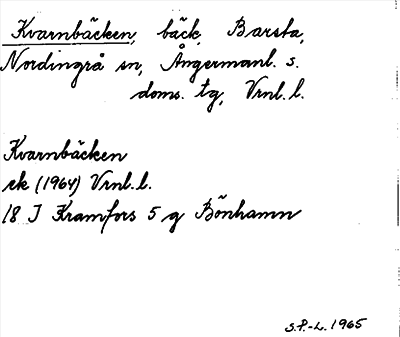 Kvarnbäcken, bäck, Barsta,
Nordingrå sn, Ångermanl. s.
doms. tg, Vrnl. l.
Kvarnbäcken
ek (1964) Vrnl. l.
18 I Kramfors 5 g Bönhamn
S.P.-L. 1965